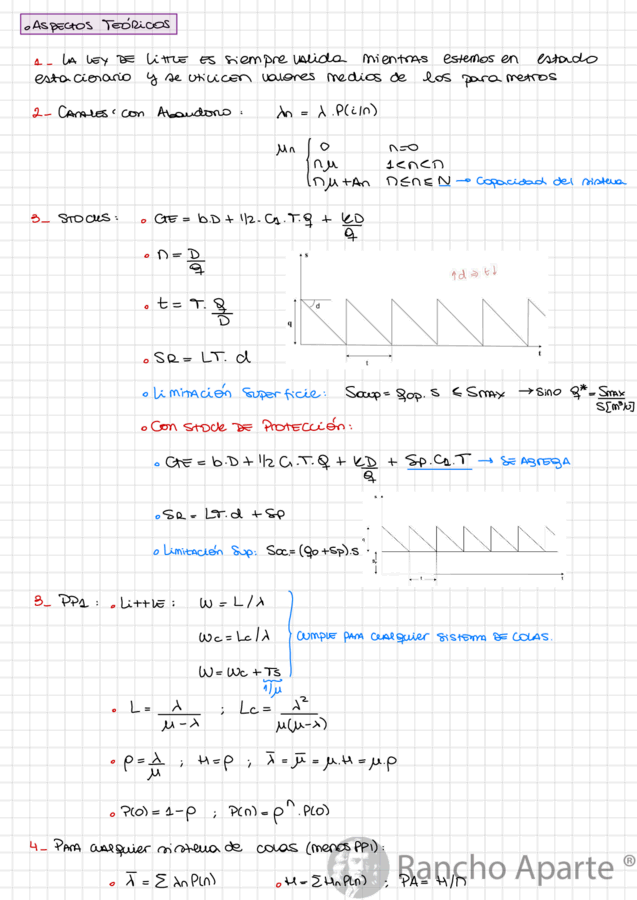 • ASPECTOS TEÓRICOS
1_ LA LEY DE LITTLE ES siempre valida mientras estemos en estado
estacionario y se utilicen valores medios de los parametros
2_ CANALES con Abandono: λn = λ.P(i/n)
μn { 0 n=0
nμ 1<n<n
nμ+An n≤n≤N → Capacidad del sistema
3_ STOCKS: • CTE = b.D + 1/2. C1.T.q + KD/q
• n = D/q
• t = T. q/D
s
d
q
t
t
↑d ⇒ t↓
• SR = LT. d
• Limitación superficie: Socup = qop. s ≤ Smax → sino q* = Smax/s[m²/u]
• CON STOCK DE PROTECCIÓN:
• CTE = b.D + 1/2 C1.T.q + KD/q + Sp.C1.T → SE AGREGA
• SR = LT.d + Sp
• Limitación Sup: Soc = (qo+Sp).s
t
3_ PP1: • LITTLE: W = L/λ
Wc = Lc/λ
CUMPLE PARA CUALQUIER SISTEMA DE COLAS.
W = Wc + Ts
1/μ
• L = λ/(μ-λ) ; Lc = λ²/(μ(μ-λ))
• ρ = λ/μ ; H = ρ ; λ̄ = μ̄ = μ.H = μ.ρ
• P(0) = 1-ρ ; P(n) = ρⁿ.P(0)
4_ PARA cualquier sistema de colas (menos PP1):
• λ̄ = Σ λn P(n) • H = ΣHn P(n) ; PA = H/n
Rancho Aparte ®